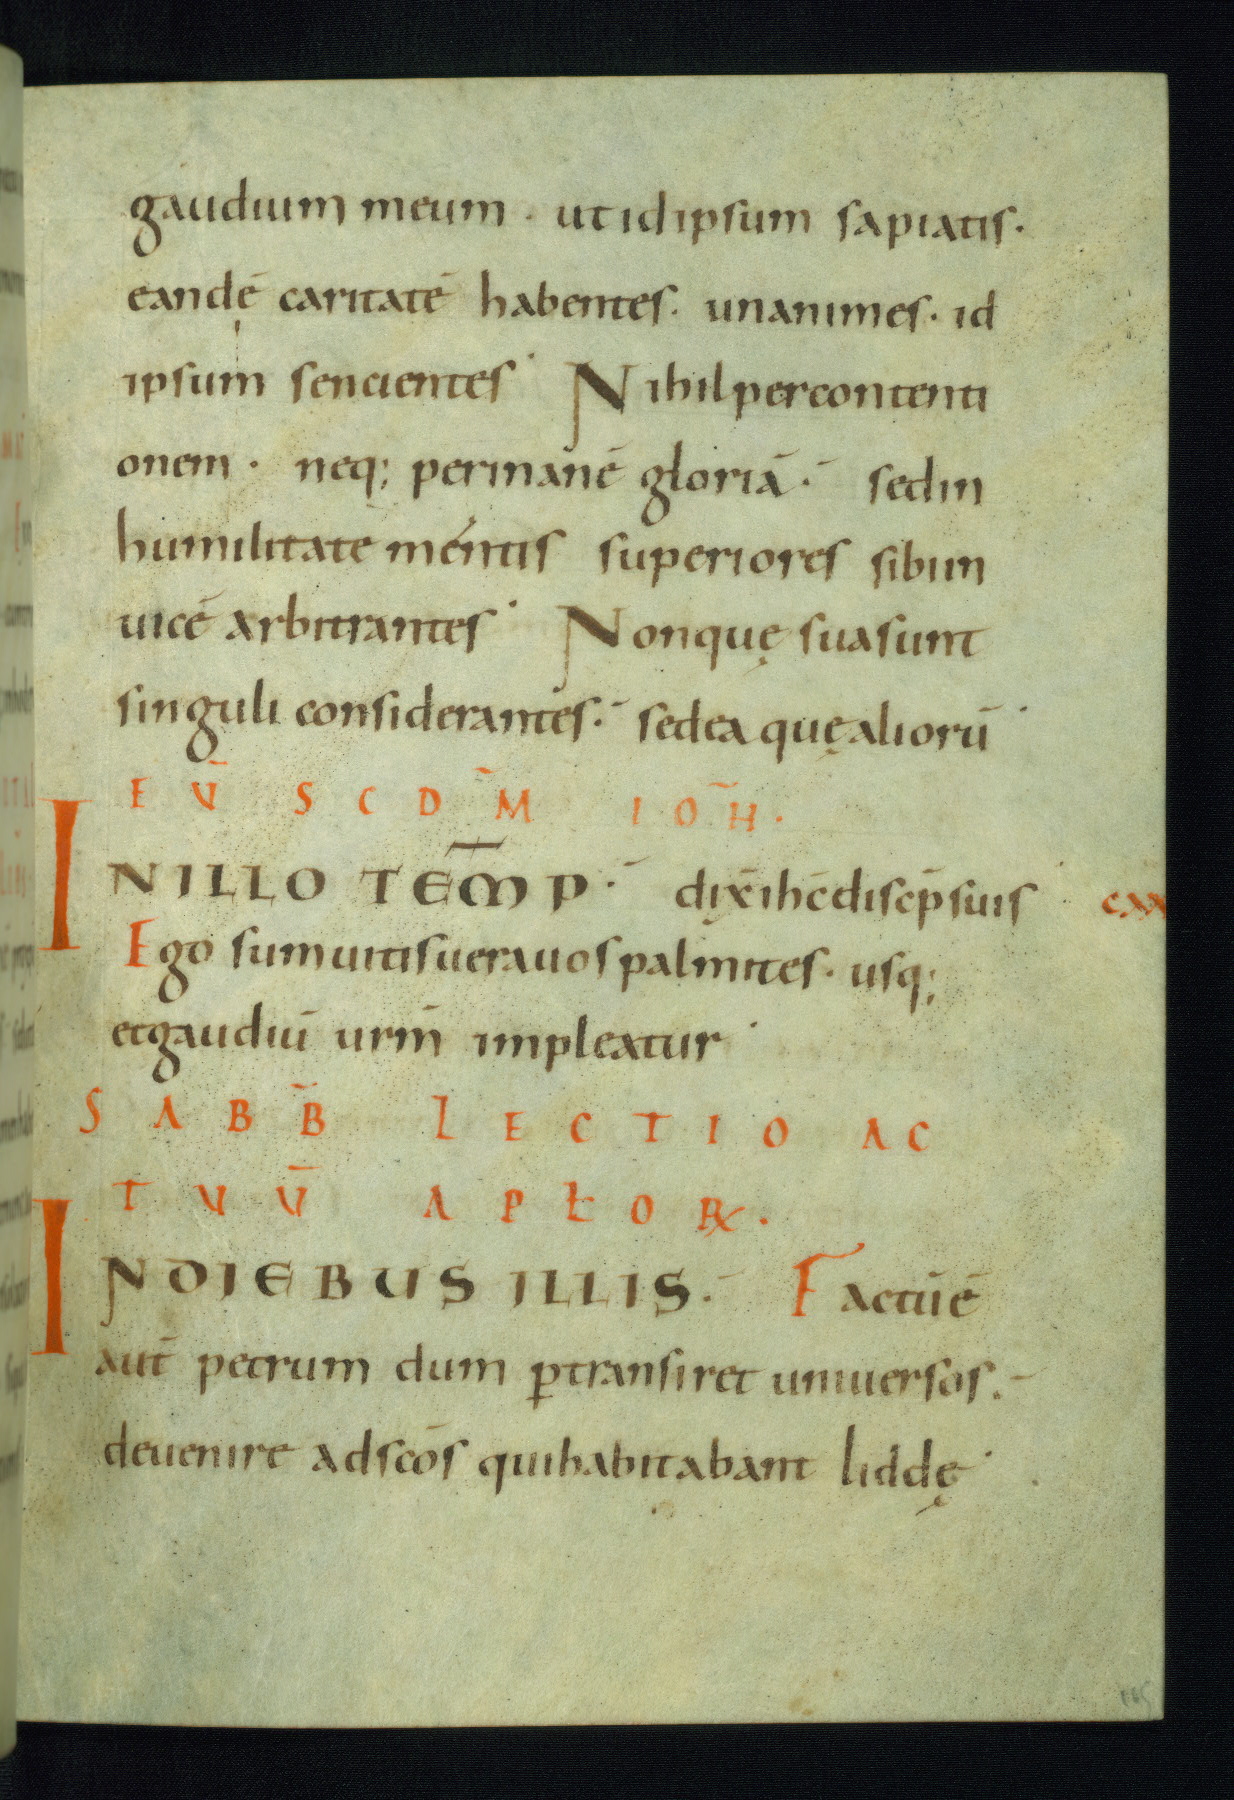 gaudium meum · ut idipsum sapiatis·
eandē caritatē habentes· unanimes· id
ipsum sencientes· Nihil per contenti
onem· neq; per inanē gloriā· sed in
humilitate mentis superiores sibi in
uicē arbitrantes· Non quę sua sunt
singuli considerantes· sed ea quę aliorū·
EŪ SCDM̄ IOH̄·
IN ILLO TEM̄P· dix̄ ihc̄ discp̄ suis
Ego sum uitis uera uos palmites· usq;
et gaudiū urm̄ impleatur·
SABB̄ LECTIO AC
TUŪ APŁOꝜ·
IN DIEBUS ILLIS· Factū ē
aut̄ petrum dum ꝑtransiret uniuersos·
deuenire ad scōs qui habitabant liddę·